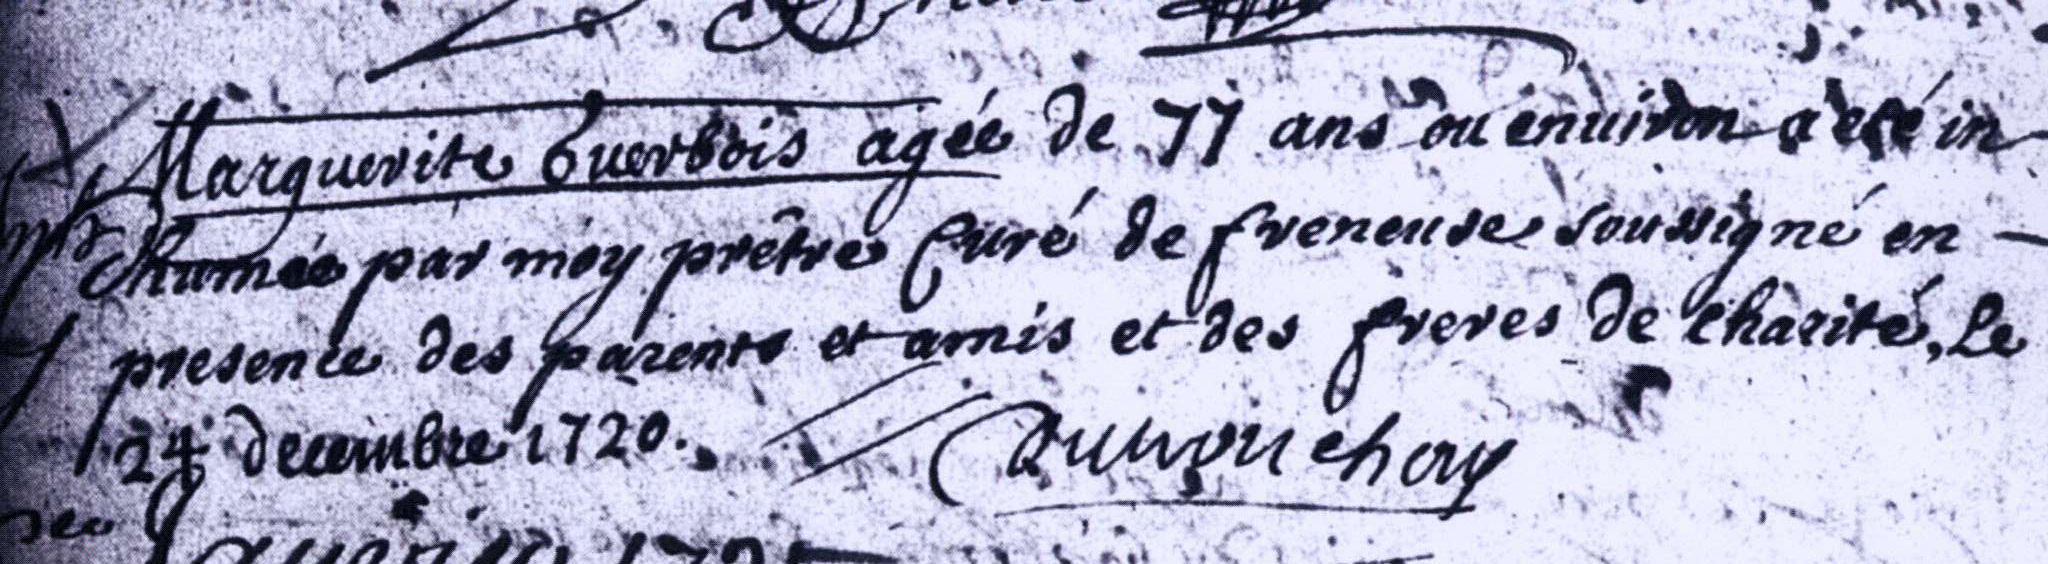 Marguerite Guerbois agée de 77 ans ou environ a été in
humée par moy prêtre Curé de freneuse soussigné en
presence des parents et amis et des freres de charité, Le
24 decembre 1720.
1721